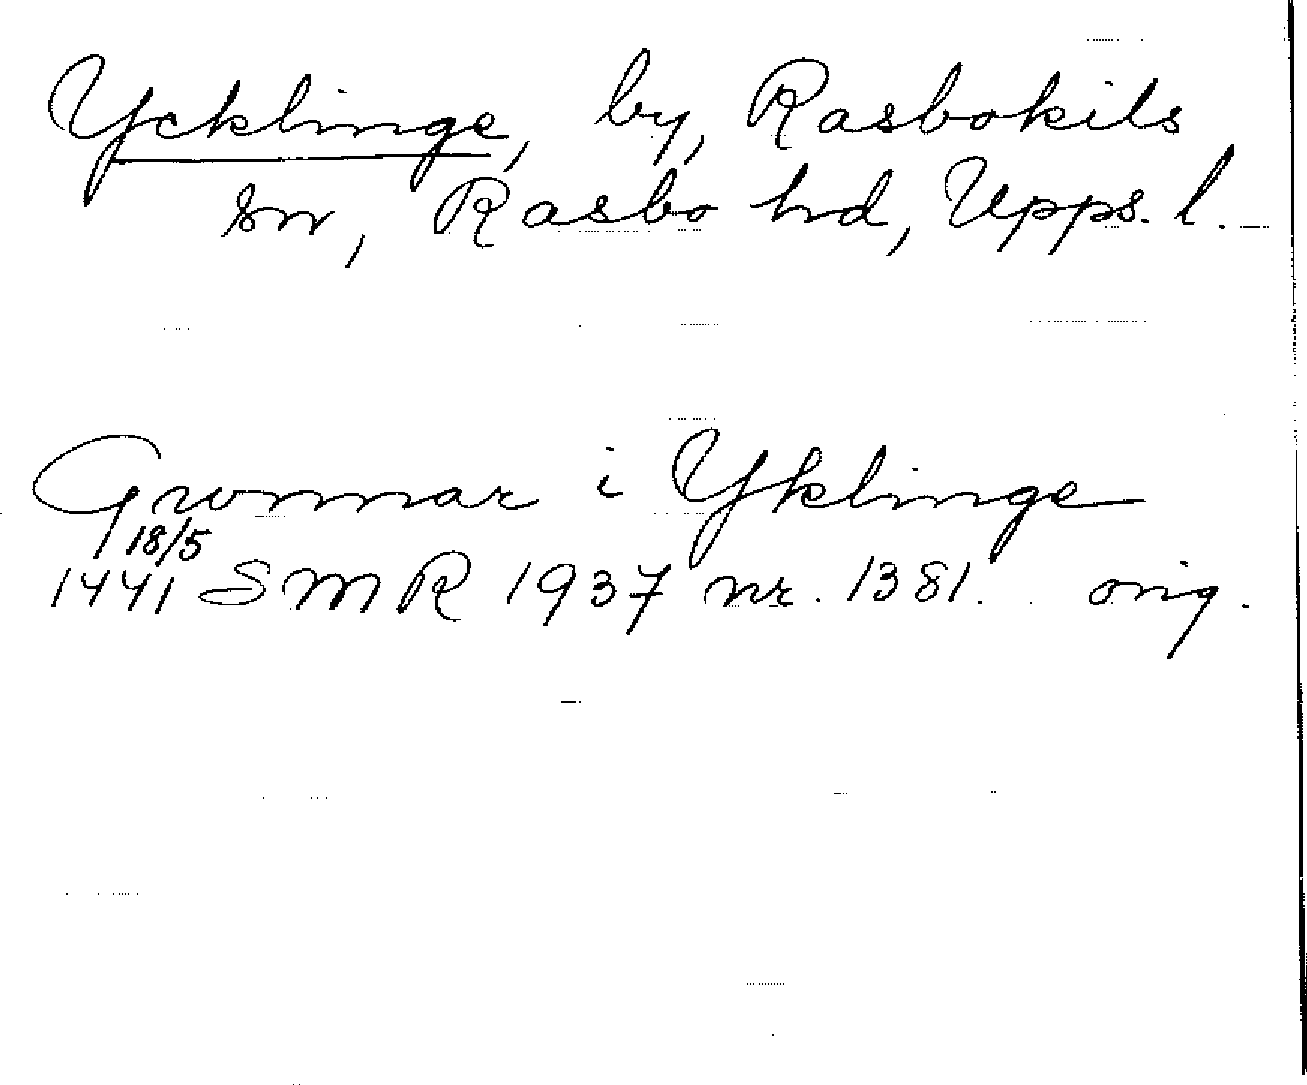 Ycklinge, by, Rasbokils
sn, Rasbo hd, Upps. l.
Gwnnar i Yklinge
18/5
1441 SMR 1937 nr. 1381. orig.